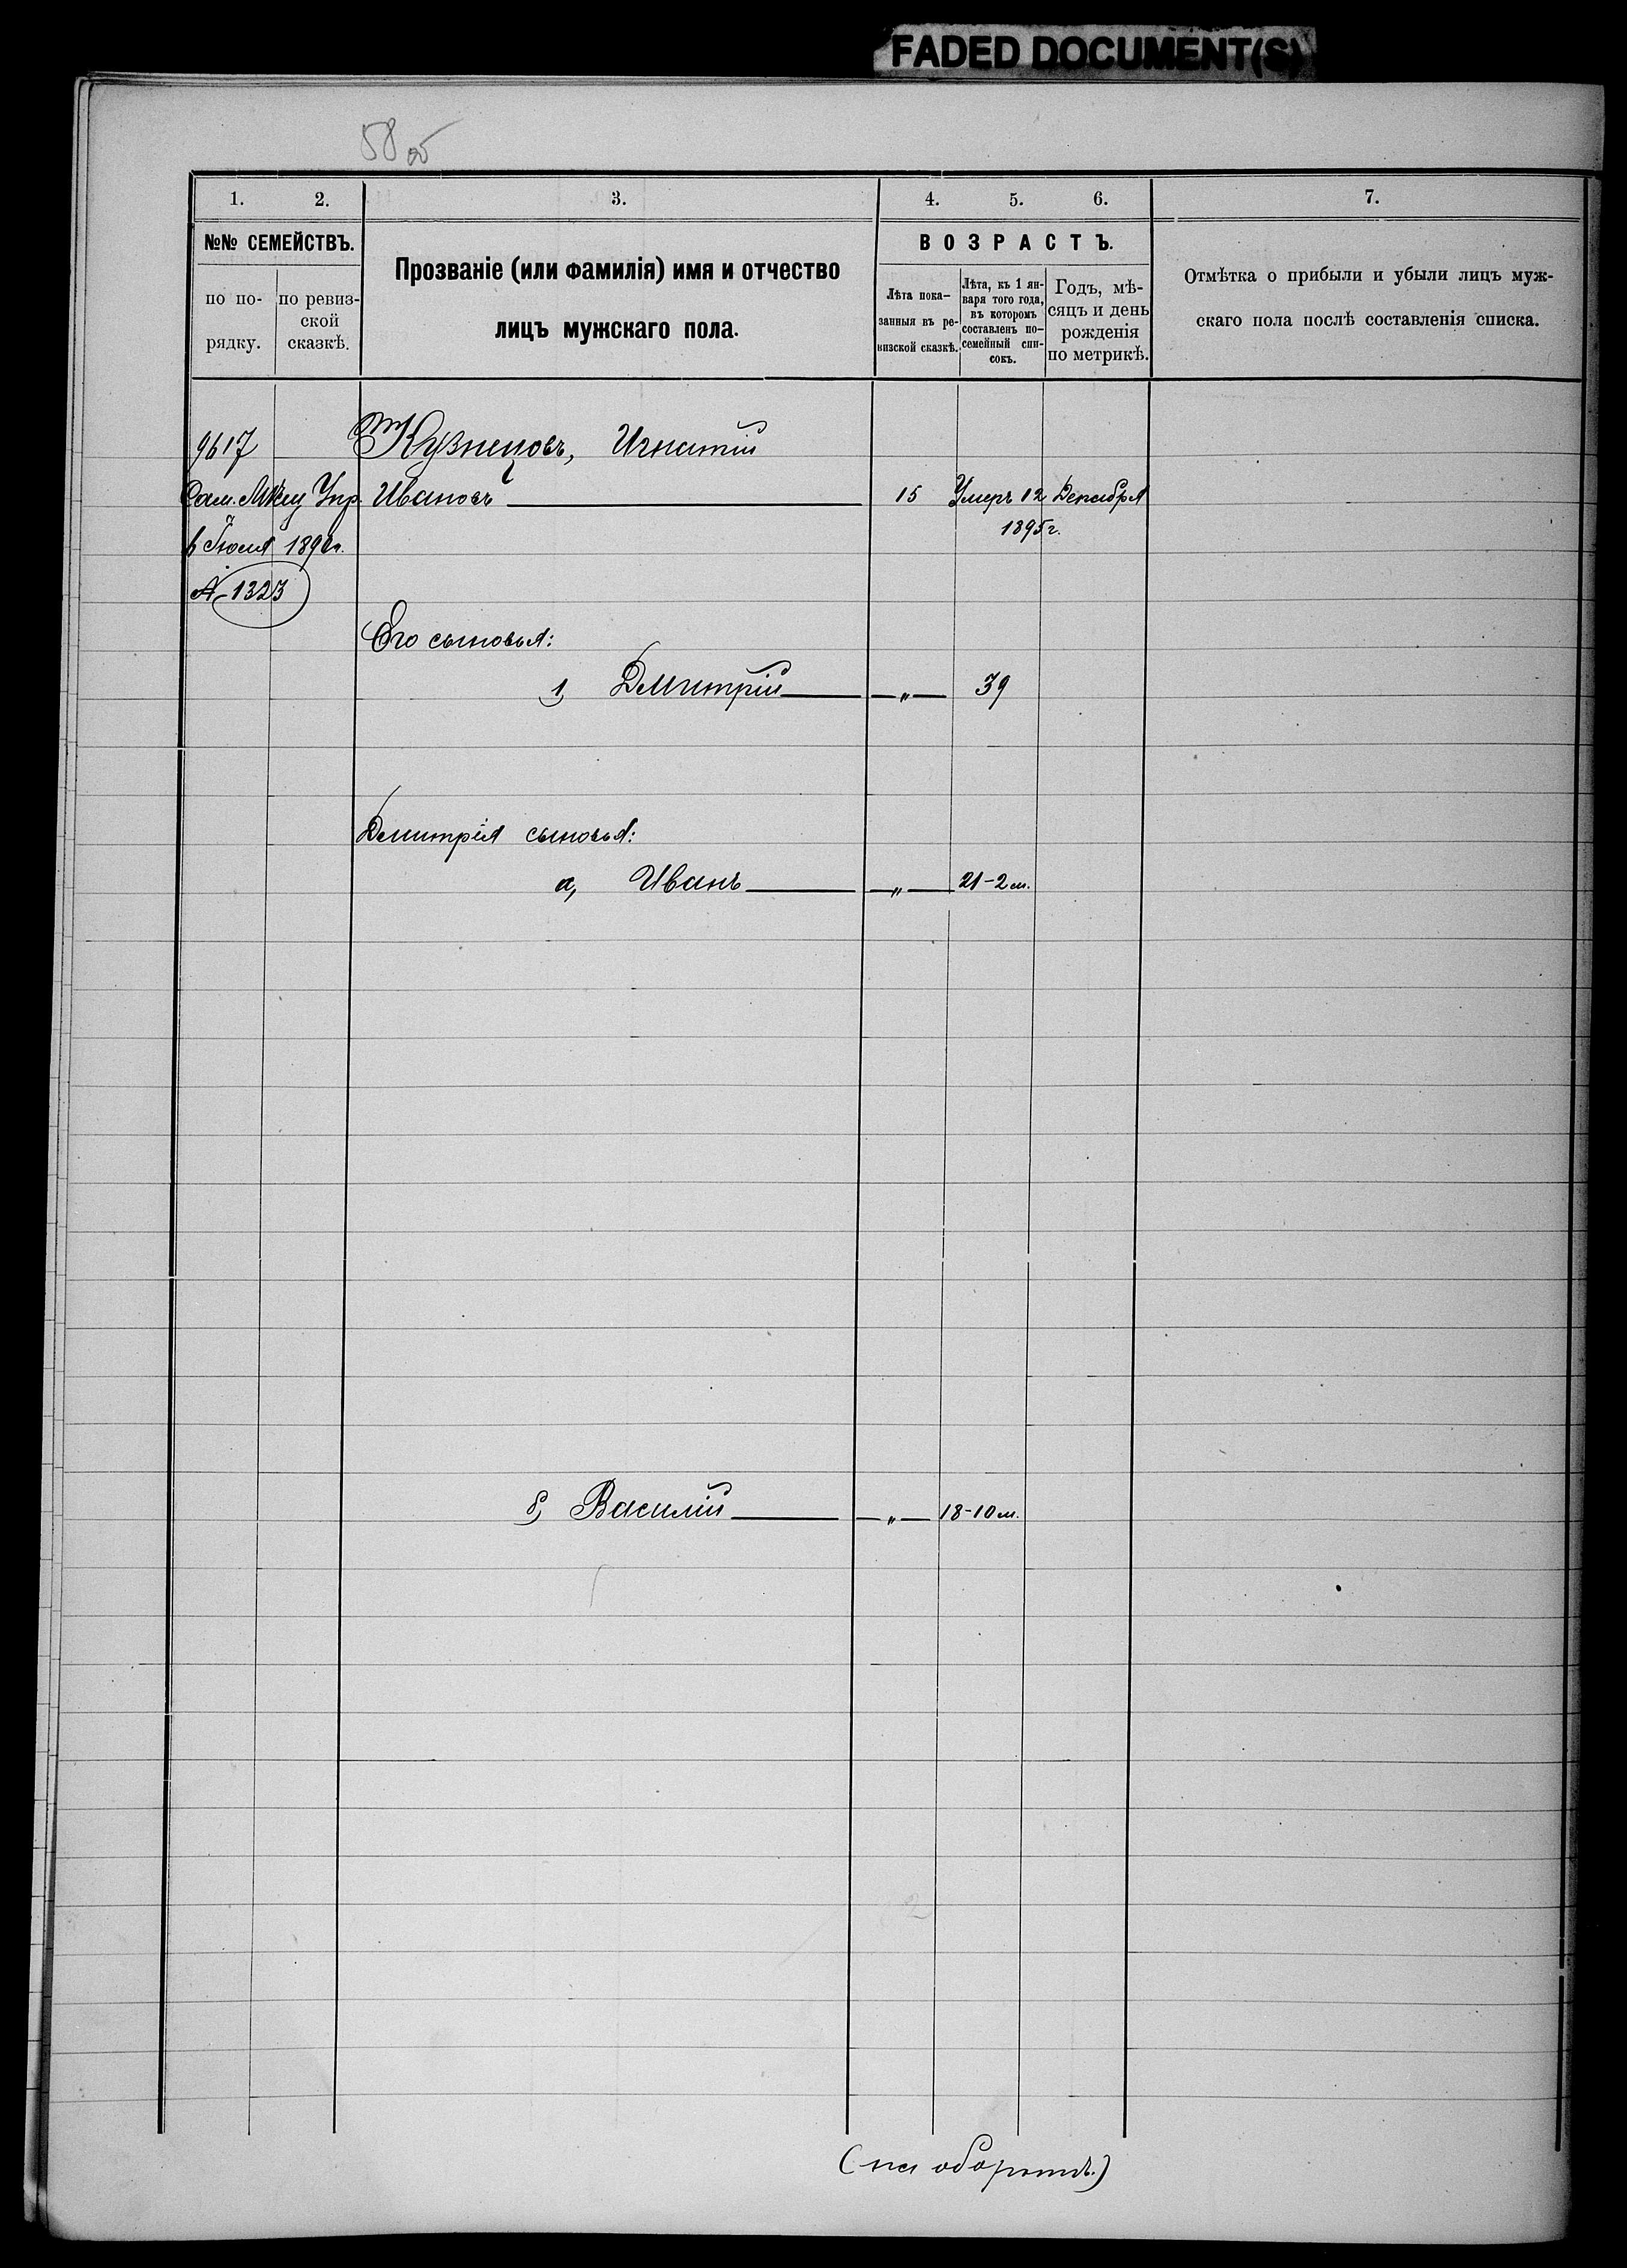 FADED DOCUMENT(S)
58 об
1. 2. 3. 4. 5. 6. 7.
№№ СЕМЕЙСТВЪ.
по по-
рядку.
по ревиз-
ской
сказкѣ.
Прозваніе (или фамилія) имя и отчество
лицъ мужскаго пола.
ВОЗРАСТЪ.
Лѣта пока-
занныя въ ре-
визской сказкѣ.
Лѣта, къ 1 ян-
варя того года,
въ которомъ
составленъ по-
семейный спи-
сокъ.
Годъ, мѣ-
сяцъ и день
рожденія
по метрикѣ.
Отмѣтка о прибыли и убыли лицъ муж-
скаго пола послѣ составленія списка.
9617 Кузнецовъ, Игнатій
Сам. Мѣщ Упр. Ивановъ 15 Умеръ 12 Декабря
1895 г.
6 Іюля
1323
Его сыновья:
1) Дмитрій " 39
Дмитрія сыновья:
а, Иванъ " 21-2 м.
б) Василій " 18-10 м.
(на оборотѣ.)